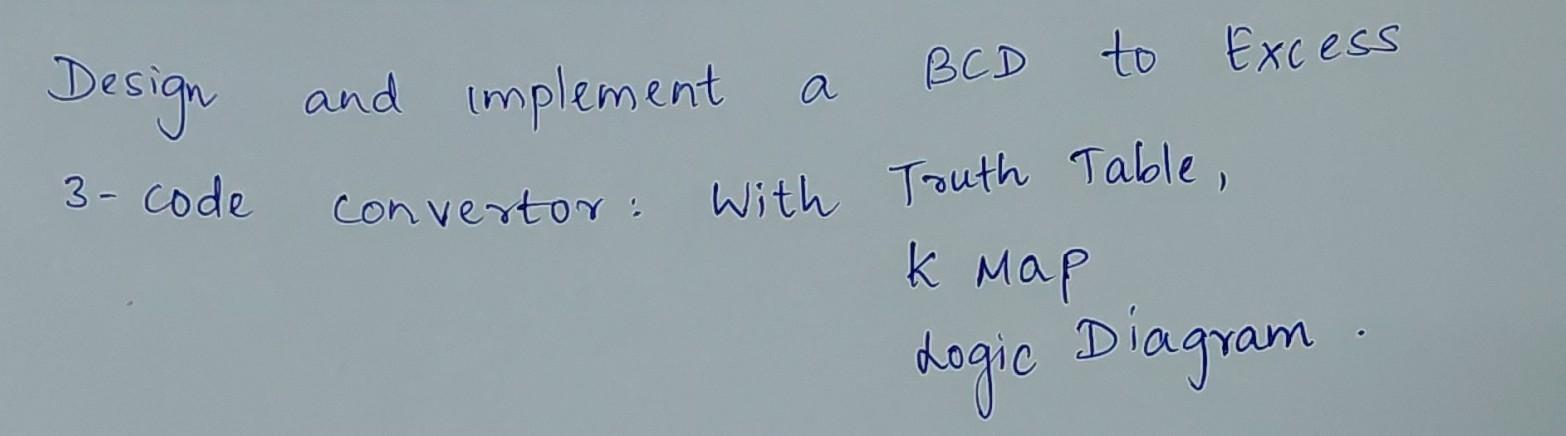 Design and implement a BCD to Excess
3-code convertor: With Truth Table,
K Map
Logic Diagram.